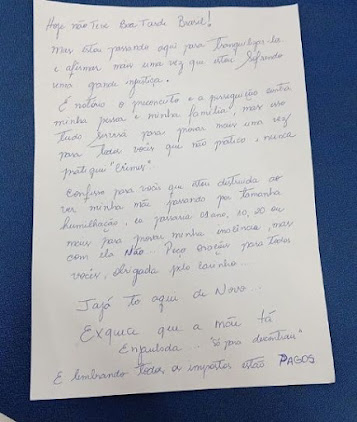 Hoje não Tive Boa Tarde Brasil!
Mas estou passando aqui para tranquilizar-los
e afirmar mais uma vez que estou sofrendo
uma grande injustiça.
É notório o preconceito e a perseguição contra
minha pessoa e minha família, mas isso
tudo servirá para provar mais uma vez
para todos vocês que não pratico, e nunca
pratiquei "Crimes"..
Confesso para vocês que estou destruída ao
ver minha mãe passando por tamanha
humilhação, eu passaria 01 ano, 10, 20 ou
mais para provar minha inocência, mas
com ela Não... Peço orações para todos
vocês, obrigada pelo carinho...
Jajá to aqui de Novo...
Exquece que a mãe tá
Enjaulada... "só pra descontrair"
E lembrando todos os impostos estão PAGOS